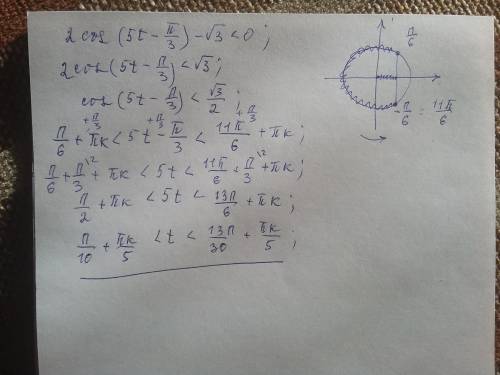 2cos(5t - π/3) - √3 < 0;
2cos(5t - π/3) < √3;
cos(5t - π/3) < √3/2;
+π/3 +π/3 +π/3
π/6 + πk < 5t - π/3 < 11π/6 + πk;
π/6 + π/3^{12} + πk < 5t < 11π/6 + π/3^{12} + πk;
π/2 + πk < 5t < 13π/6 + πk;
π/10 + πk/5 < t < 13π/30 + πk/5;
π/6
-π/6 = 11π/6